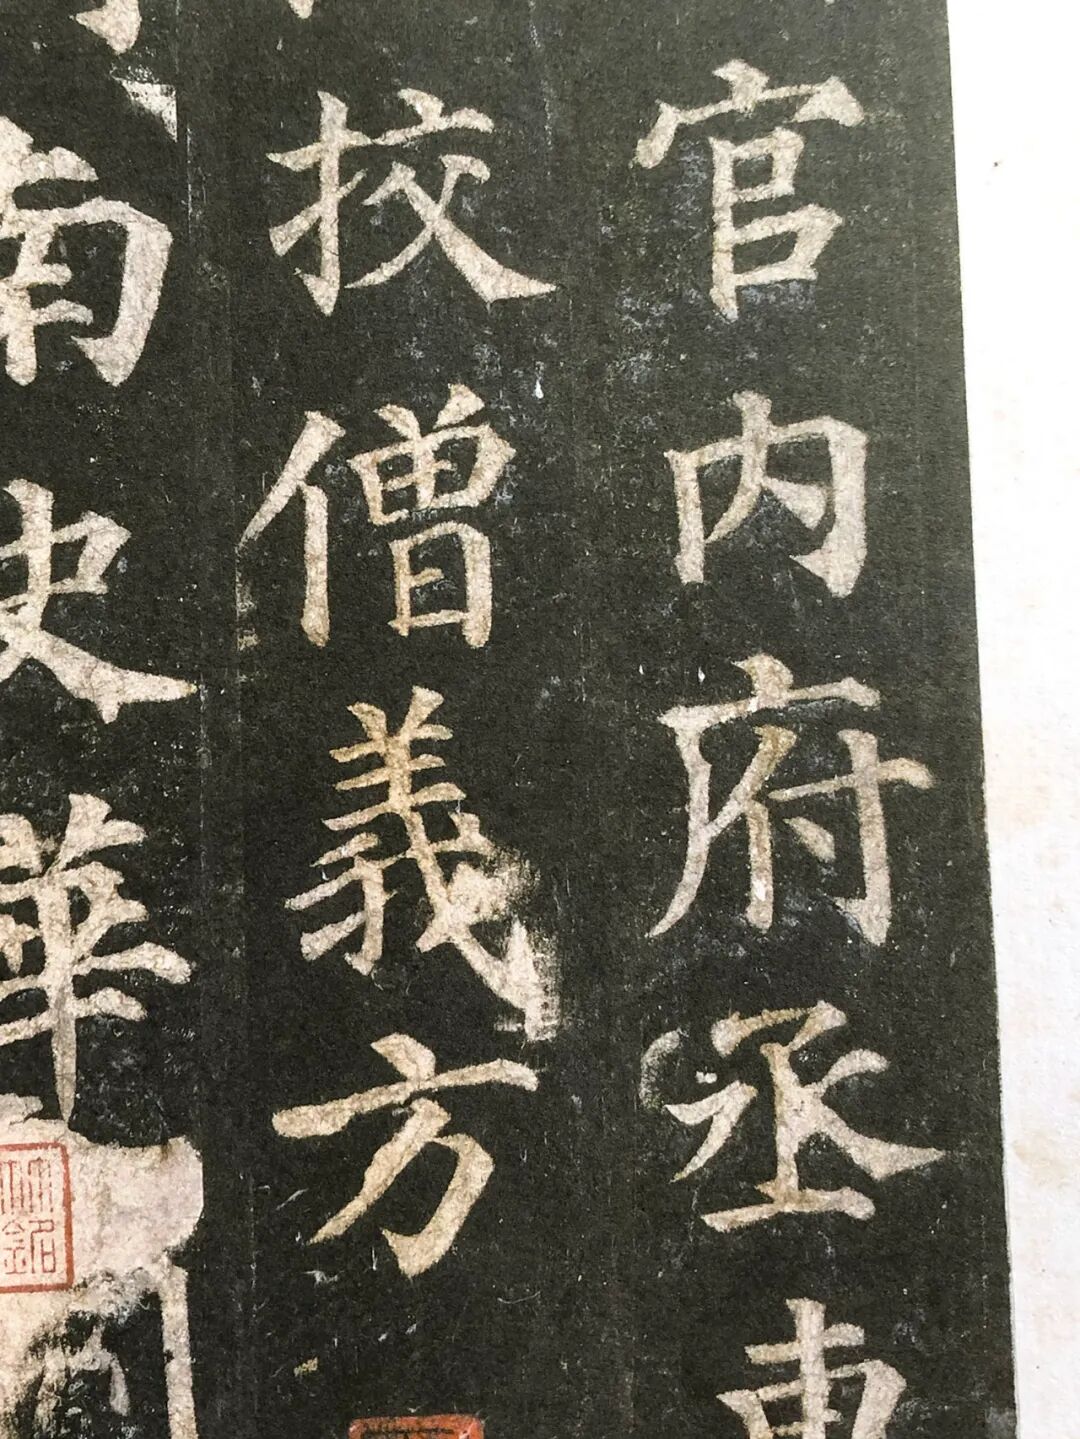 官内府丞
挍僧義方
南史